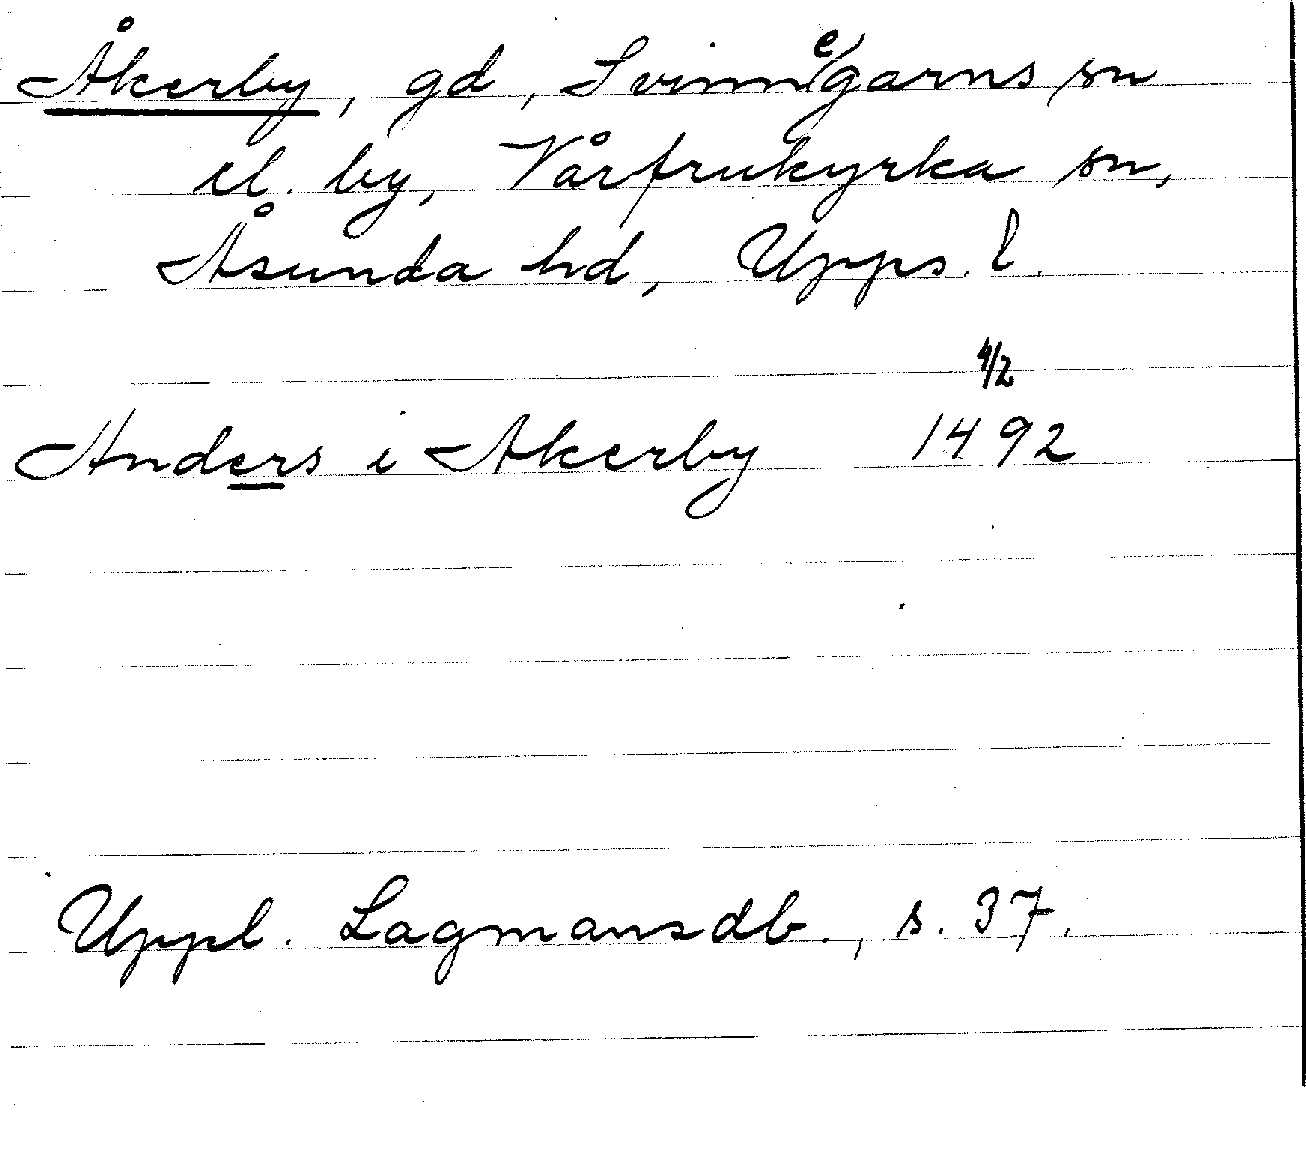 Åkerby, gd, Svinnegarns sn
el. by, Vårfrukyrka sn,
Åsunda hd, Upps. l.
4/2
Anders i Akerby 1492
Uppl. Lagmansdb., s. 37.